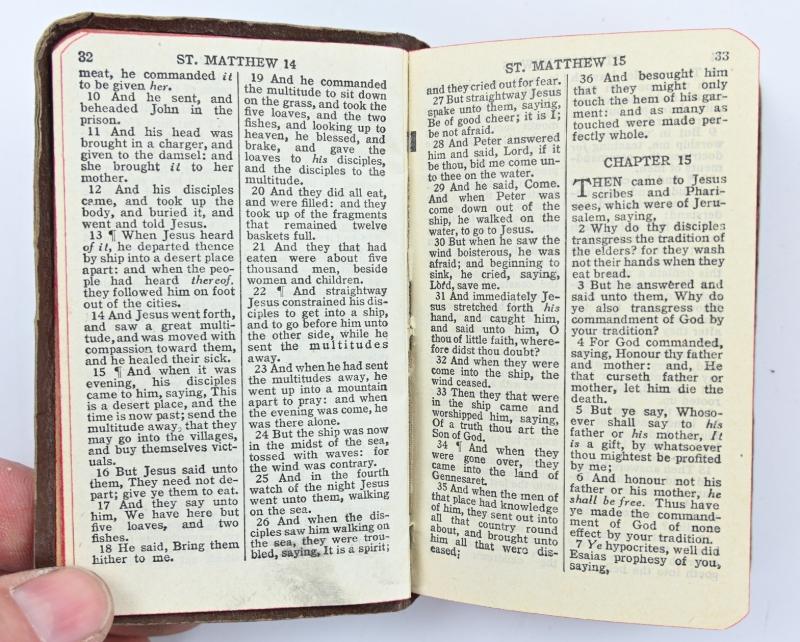 32
ST. MATTHEW 14
meat, he commanded it
to be given her.
10 And he sent, and
beheaded John in the
prison.
11 And his head was
brought in a charger, and
given to the damsel: and
she brought it to her
mother.
12 And his disciples
came, and took up the
body, and buried it, and
went and told Jesus.
13 ¶ When Jesus heard
of it, he departed thence
by ship into a desert place
apart: and when the peo-
ple had heard thereof,
they followed him on foot
out of the cities.
14 And Jesus went forth,
and saw a great multi-
tude, and was moved with
compassion toward them,
and he healed their sick.
15 ¶ And when it was
evening, his disciples
came to him, saying, This
is a desert place, and the
time is now past; send the
multitude away, that they
may go into the villages,
and buy themselves vict-
uals.
16 But Jesus said unto
them, They need not de-
part; give ye them to eat.
17 And they say unto
him, We have here but
five loaves, and two
fishes.
18 He said, Bring them
hither to me.
19 And he commanded
the multitude to sit down
on the grass, and took the
five loaves, and the two
fishes, and looking up to
heaven, he blessed, and
brake, and gave the
loaves to his disciples,
and the disciples to the
multitude.
20 And they did all eat,
and were filled: and they
took up of the fragments
that remained twelve
baskets full.
21 And they that had
eaten were about five
thousand men, beside
women and children.
22 ¶ And straightway
Jesus constrained his dis-
ciples to get into a ship,
and to go before him unto
the other side, while he
sent the multitudes
away.
23 And when he had sent
the multitudes away, he
went up into a mountain
apart to pray: and when
the evening was come, he
was there alone.
24 But the ship was now
in the midst of the sea,
tossed with waves: for
the wind was contrary.
25 And in the fourth
watch of the night Jesus
went unto them, walking
on the sea.
26 And when the dis-
ciples saw him walking on
the sea, they were trou-
bled, saying, It is a spirit;
ST. MATTHEW 15
33
and they cried out for fear.
27 But straightway Jesus
spake unto them, saying,
Be of good cheer; it is I;
be not afraid.
28 And Peter answered
him and said, Lord, if it
be thou, bid me come un-
to thee on the water.
29 And he said, Come.
And when Peter was
come down out of the
ship, he walked on the
water, to go to Jesus.
30 But when he saw the
wind boisterous, he was
afraid; and beginning to
sink, he cried, saying,
Lord, save me.
31 And immediately Je-
sus stretched forth his
hand, and caught him,
and said unto him, O
thou of little faith, where-
fore didst thou doubt?
32 And when they were
come into the ship, the
wind ceased.
33 Then they that were
in the ship came and
worshipped him, saying,
Of a truth thou art the
Son of God.
34 ¶ And when they
were gone over, they
came into the land of
Gennesaret.
35 And when the men of
that place had knowledge
of him, they sent out into
all that country round
about, and brought unto
him all that were dis-
eased;
36 And besought him
that they might only
touch the hem of his gar-
ment: and as many as
touched were made per-
fectly whole.
CHAPTER 15
THEN came to Jesus
scribes and Phari-
sees, which were of Jeru-
salem, saying,
2 Why do thy disciples
transgress the tradition of
the elders? for they wash
not their hands when they
eat bread.
3 But he answered and
said unto them, Why do
ye also transgress the
commandment of God by
your tradition?
4 For God commanded,
saying, Honour thy father
and mother: and, He
that curseth father or
mother, let him die the
death.
5 But ye say, Whoso-
ever shall say to his
father or his mother, It
is a gift, by whatsoever
thou mightest be profited
by me;
6 And honour not his
father or his mother, he
shall be free. Thus have
ye made the command-
ment of God of none
effect by your tradition.
7 Ye hypocrites, well did
Esaias prophesy of you,
saying,